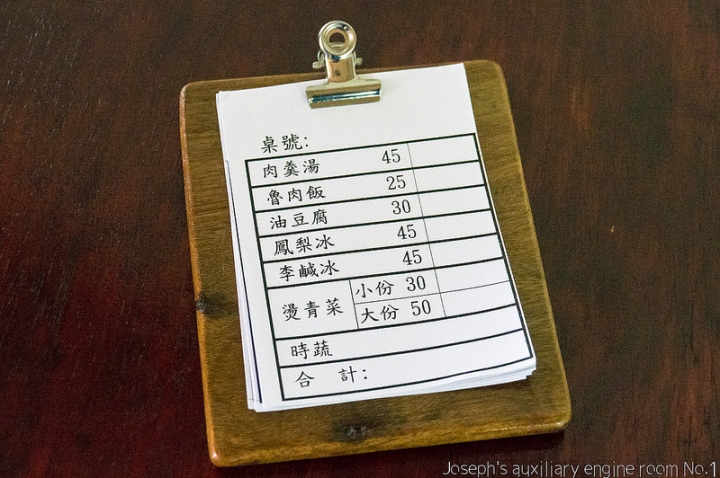 桌號:
肉羹湯 45
魯肉飯 25
油豆腐 30
鳳梨冰 45
李鹹冰 45
燙青菜 小份 30
大份 50
時蔬
合 計:
Joseph's auxiliary engine room No.1